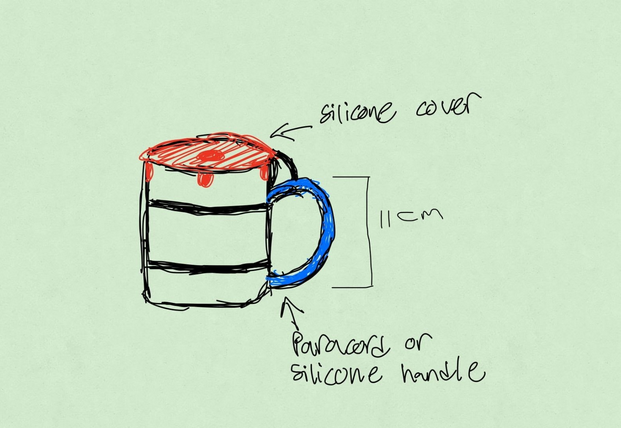 silicone cover
11cm
Paracord or
silicone handle